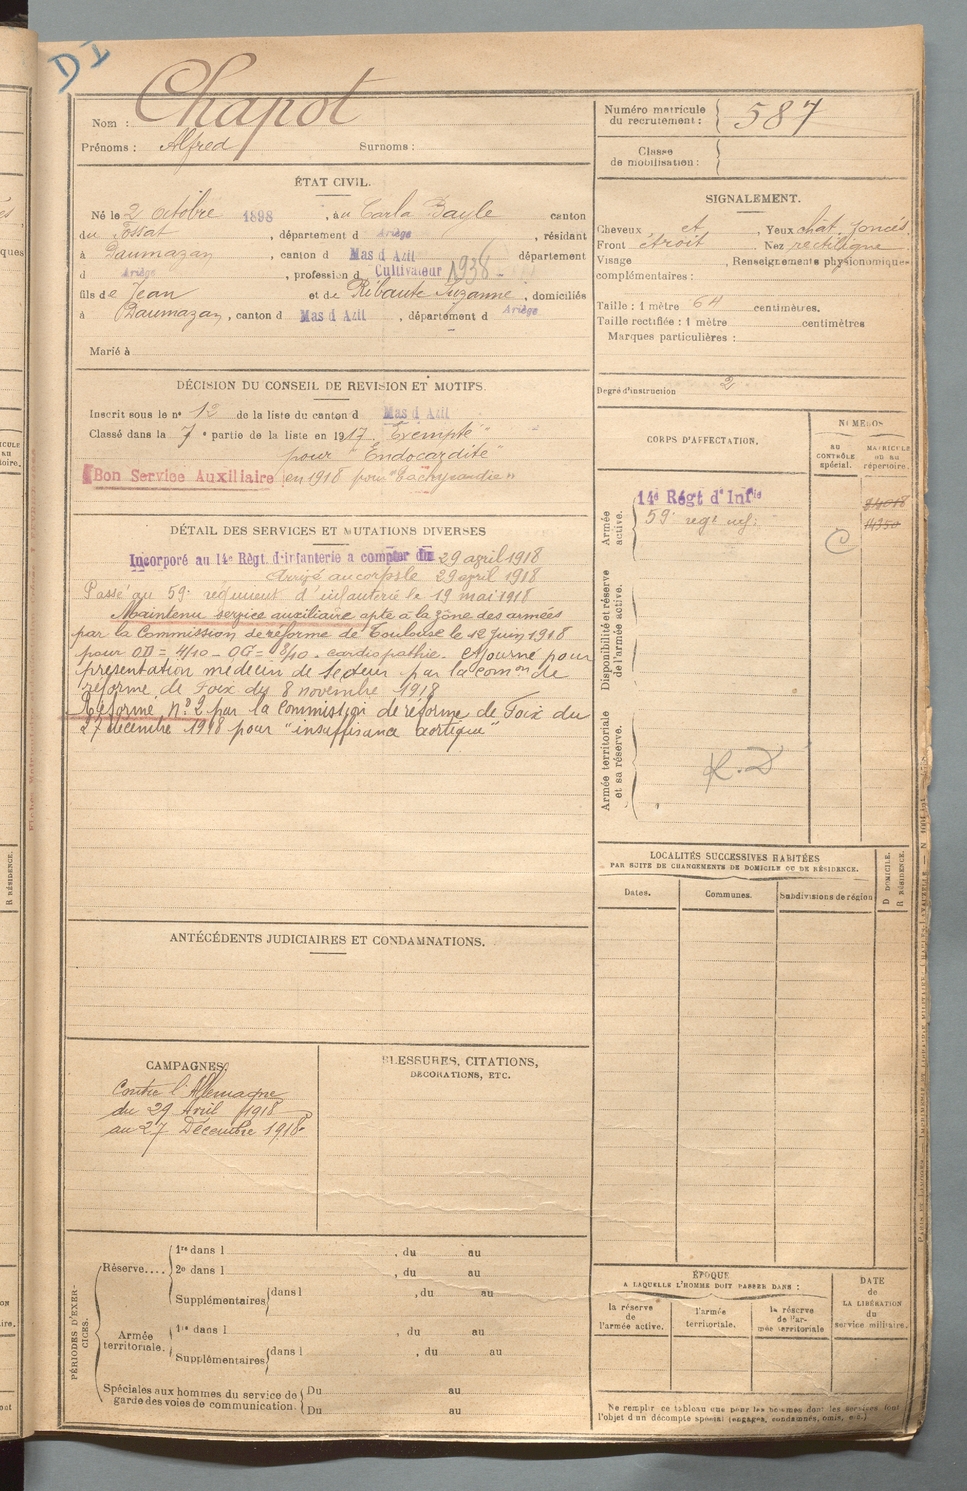 DI
Nom : Chapot
Prénoms : Alfred Surnoms :
Numéro matricule du recrutement : 587
Classe de mobilisation :
ÉTAT CIVIL.
Né le 2 octobre 1898, à Carla Bayle canton
du Fossat, département d Ariège, résidant
à Daumazan, canton d Mas d Azil département
d Ariège, profession d Cultivateur 1938
fils de Jean et de Ribaute Suzanne, domiciliés
à Daumazan, canton d Mas d Azil, département d Ariège
Marié à
SIGNALEMENT.
Cheveux ct, Yeux chât. foncés.
Front étroit Nez rectiligne
Visage , Renseignements physionomiques
complémentaires :
Taille : 1 mètre 64 centimètres.
Taille rectifiée : 1 mètre centimètres
Marques particulières :
Degré d'instruction 2
DÉCISION DU CONSEIL DE REVISION ET MOTIFS.
Inscrit sous le n° 12 de la liste du canton d Mas d Azil
Classé dans la 7e partie de la liste en 1917. "Exempté"
pour "Endocardite"
Bon Service Auxiliaire en 1918 pour "Tachycardie"
DÉTAIL DES SERVICES ET MUTATIONS DIVERSES
Incorporé au 14e Régt. d'infanterie a compter du 29 april 1918
Arrivé au corps le 29 april 1918
Passé au 59e régiment d'infanterie le 19 mai 1918
Maintenu service auxiliaire apte à la zône des armées
par la Commission de réforme de Toulouse le 12 juin 1918
pour OD = 4/10 - OG = 8/10 - cardiopathie. Ajourné pour
présentation médecin de secteur par la comon de
réforme de Foix du 8 novembre 1918
Réformé n° 2 par la Commission de réforme de Foix du
27 décembre 1918 pour "insuffisance aortique"
CORPS D'AFFECTATION.
NUMÉROS
AU CONTRÔLE spécial.
MATRICULE OU AU répertoire.
Armée active.
14e Régt d'Infie
59e regt inf:
C
Disponibilité et réserve de l'armée active.
Armée territoriale et sa réserve.
R.D
LOCALITÉS SUCCESSIVES HABITÉES
PAR SUITE DE CHANGEMENTS DE DOMICILE OU DE RÉSIDENCE.
Dates. Communes. Subdivisions de région
D DOMICILE.
R RÉSIDENCE.
ANTÉCÉDENTS JUDICIAIRES ET CONDAMNATIONS.
CAMPAGNES.
Contre l'Allemagne
du 29 Avril 1918
au 27 Décembre 1918.
BLESSURES, CITATIONS,
DÉCORATIONS, ETC.
PÉRIODES D'EXERCICES.
Réserve....
1re dans l , du au
2e dans l , du au
Supplémentaires dans l , du au
Armée territoriale.
1re dans l , du au
Supplémentaires dans l , du au
Spéciales aux hommes du service de
garde des voies de communication.
Du au
Du au
ÉPOQUE
A LAQUELLE L'HOMME DOIT PASSER DANS :
la réserve de l'armée active.
l'armée territoriale.
la réserve de l'armée territoriale
DATE de LA LIBÉRATION du service militaire.
Ne remplir ce tableau que pour les hommes dont les services font
l'objet d'un décompte spécial (engagés, condamnés, omis, etc.)